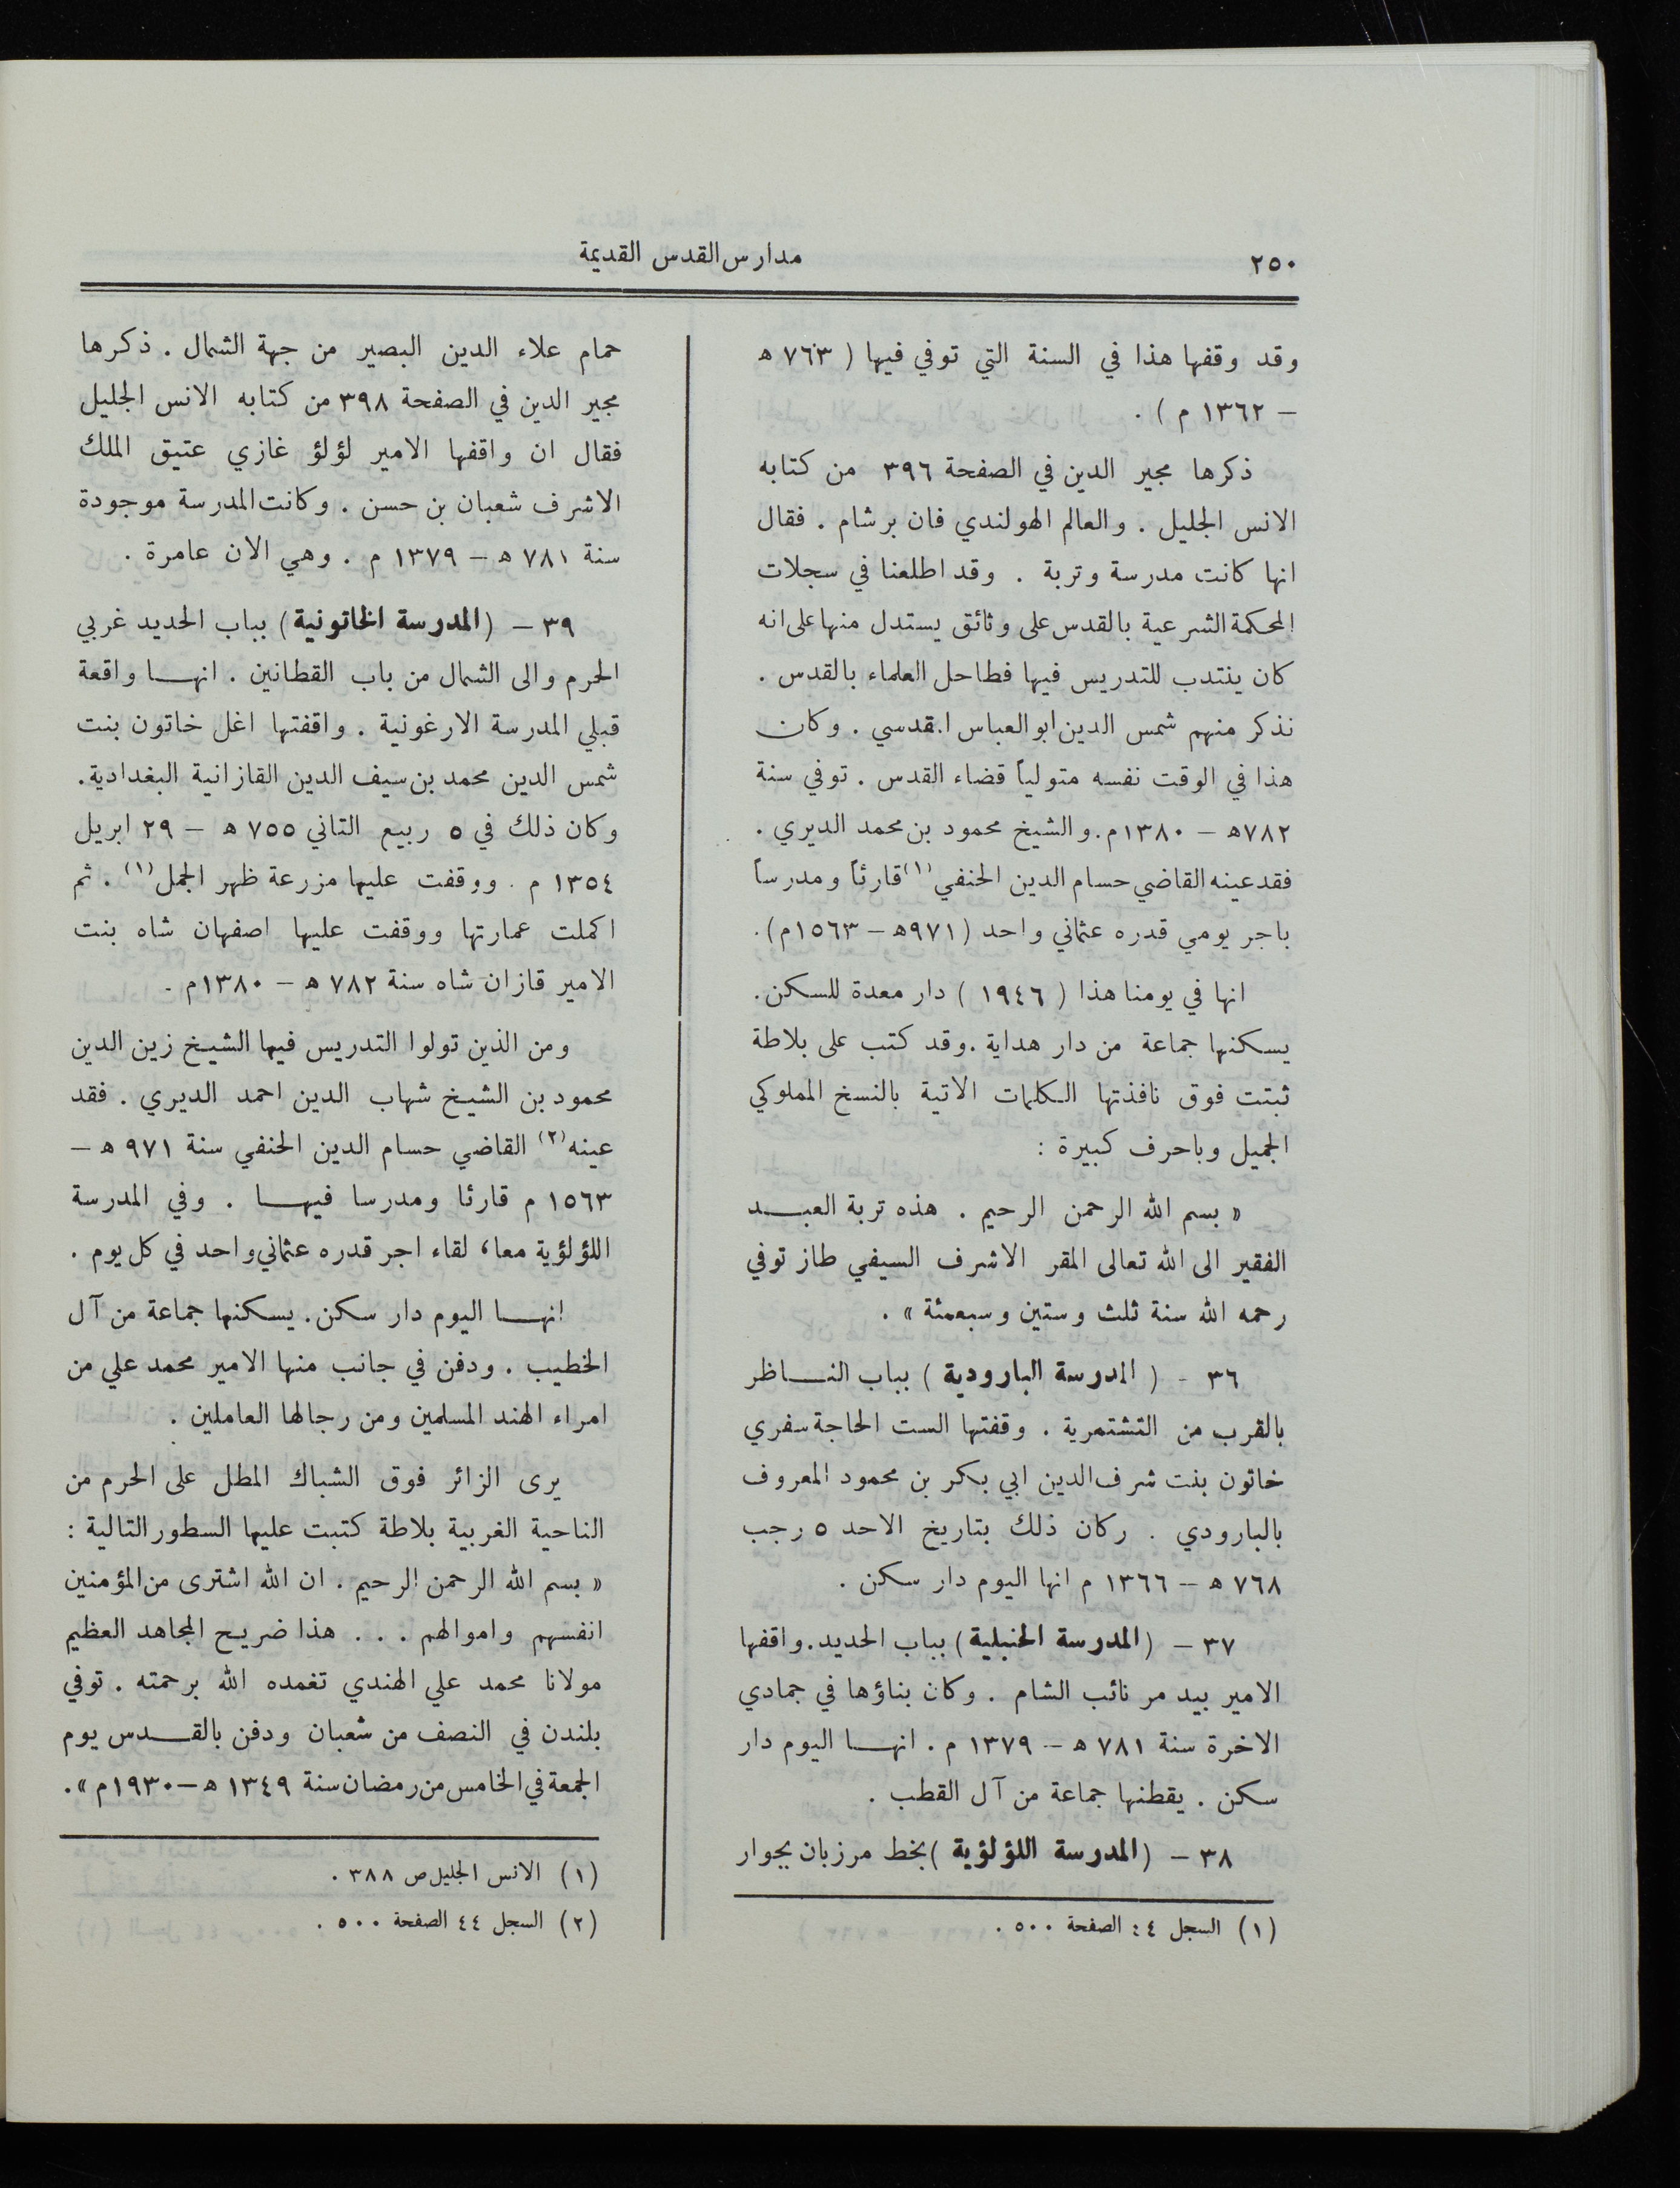 ٢٥٠
مدارس القدس القديمة
وقد وقفها هذا في السنة التي توفي فيها ( ٧٦٣ ه
– ١٣٦٢ م ) .
ذكرها مجير الدين في الصفحة ٣٩٦ من كتابه
الانس الجليل . والعالم الهولندي فان برشام . فقال
انها كانت مدرسة وتربة . وقد اطلعنا في سجلات
المحكمة الشرعية بالقدس على وثائق يستدل منها على انه
كان ينتدب للتدريس فيها فطاحل العلماء بالقدس .
نذكر منهم شمس الدين ابو العباس المقدسي . وكان
هذا في الوقت نفسه متولياً قضاء القدس . توفي سنة
٧٨٢ه – ١٣٨٠م . والشيخ محمود بن محمد الديري .
فقد عينه القاضي حسام الدين الحنفي (١) قارئاً ومدرساً
باجر يومي قدره عثماني واحد (٩٧١ه – ١٥٦٣م) .
انها في يومنا هذا ( ١٩٤٦ ) دار معدة للسكن .
يسكنها جماعة من دار هداية . وقد كتب على بلاطة
ثبتت فوق نافذتها الكلمات الاتية بالنسخ المملوكي
الجميل وباحرف كبيرة :
« بسم الله الرحمن الرحيم . هذه تربة العبد
الفقير الى الله تعالى المقر الاشرف السيفي طاز توفي
رحمه الله سنة ثلث وستين وسبعمئة » .
٣٦ - ( المدرسة البارودية ) بباب الناظر
بالقرب من التشتمرية . وقفتها الست الحاجة سفري
خاتون بنت شرف الدين ابي بكر بن محمود المعروف
بالبارودي . ركان ذلك بتاريخ الاحد ٥ رجب
٧٦٨ ه – ١٣٦٦ م انها اليوم دار سكن .
٣٧ – ( المدرسة الحنبلية ) بباب الحديد . واقفها
الامير بيد مر نائب الشام . وكان بناؤها في جمادي
الاخرة سنة ٧٨١ ه – ١٣٧٩ م . انها اليوم دار
سكن . يقطنها جماعة من آل القطب .
٣٨ – ( المدرسة اللؤلؤية ) بخط مرزبان بجوار
(١) السجل ٤٤ الصفحة ٥٠٠ .
حمام علاء الدين البصير من جهة الشمال . ذكرها
مجير الدين في الصفحة ٣٩٨ من كتابه الانس الجليل
فقال ان واقفها الامير لؤلؤ غازي عتيق الملك
الاشرف شعبان بن حسن . وكانت المدرسة موجودة
سنة ٧٨١ ه – ١٣٧٩ م . وهي الان عامرة .
٣٩ – ( المدرسة الخاتونية ) بباب الحديد غربي
الحرم والى الشمال من باب القطانين . انها واقعة
قبلي المدرسة الارغونية . واقفتها اغل خاتون بنت
شمس الدين محمد بن سيف الدين القازانية البغدادية .
وكان ذلك في ٥ ربيع الثاني ٧٥٥ ه – ٢٩ ابريل
١٣٥٤ م . ووقفت عليها مزرعة ظهر الجمل (١) . ثم
اكملت عمارتها ووقفت عليها اصفهان شاه بنت
الامير قازان شاه سنة ٧٨٢ ه – ١٣٨٠م .
ومن الذين تولوا التدريس فيها الشيخ زين الدين
محمود بن الشيخ شهاب الدين احمد الديري . فقد
عينه (٢) القاضي حسام الدين الحنفي سنة ٩٧١ ه –
١٥٦٣ م قارئا ومدرسا فيها . وفي المدرسة
اللؤلؤية معا، لقاء اجر قدره عثماني واحد في كل يوم .
انها اليوم دار سكن . يسكنها جماعة من آل
الخطيب . ودفن في جانب منها الامير محمد علي من
امراء الهند المسلمين ومن رجالها العاملين .
يرى الزائر فوق الشباك المطل على الحرم من
الناحية الغربية بلاطة كتبت عليها السطور التالية :
« بسم الله الرحمن الرحيم . ان الله اشترى من المؤمنين
انفسهم واموالهم . . . هذا ضريح المجاهد العظيم
مولانا محمد علي الهندي تغمده الله برحمته . توفي
بلندن في النصف من شعبان ودفن بالقدس يوم
الجمعة في الخامس من رمضان سنة ١٣٤٩ ه – ١٩٣٠م » .
(١) الانس الجليل ص ٣٨٨ .
(٢) السجل ٤٤ الصفحة ٥٠٠ .